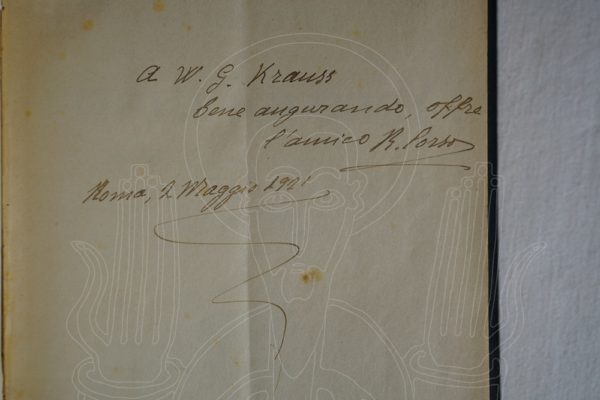 A W. G. Krauss
bene augurando, offre
l'amico R. Corso
Roma, 2 Maggio 1921